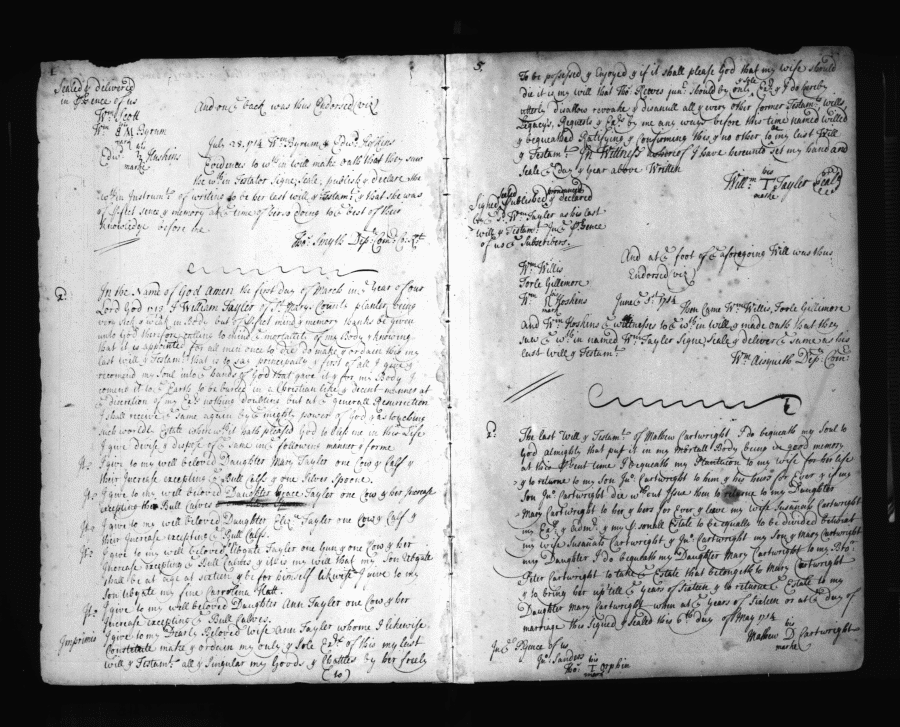 Sealed & delivered
in Psence of us
Wm Scott
Wm M Byrum
mark
Edwd Hoskins
marke
And on ye back was thus Endorsed viz
July 29. 1714 Wm Byrum & Edwd Hoskins
Evidences to wth in will make oath that they saw
the wth in Testator Signe, Seale, publish & declare the
wth in Instrumt of writeing to be her last will & Testamt & that she was
of pfect Sence & memory at ye time of her so doing to ye best of their
knowledge before me
Tho: Smyth Dep: Com:
In the Name of God Amen the first day of March in ye year of our
Lord God 1713 I William Tayler of St Marys County planter, being
very sick & weak in Body but of pfect mind & memory thanks be given
unto God therefore calling to mind ye mortality of my Body & knowing
that it is appointed for all men once to die do make & ordain this my
last will & Testamt that is to say principally & first of all I give &
recomend my Soul into ye hands of God that gave it & for my Body I
comend it to ye Earth to be buried in a Christian like & decent manner at
ye discretion of my Exrs nothing doubting but at ye generall Resurrection
I shall receive ye same again by ye mighty power of God & as touching
such worldly Estate wherewith it hath pleased God to bless me in this Life
I give devise & dispose of ye same in ye following manner & forme
I give to my well beloved Daughter Mary Tayler one Cow & Calf &
their Increase excepting ye Bull Calf & one Silver Spoone.
I give to my well beloved Daughter Grace Tayler one Cow & her Increase
excepting the Bull Calves
I give to my well beloved Daughter Eliz: Tayler one Cow & Calf &
their Increase excepting ye Bull Calf.
I give to my well beloved Tayler one Gun & one Cow & her
Increase excepting ye Bull Calves & it is my will that my Son
shall be at age at sixteen & be for himself likewise I give to my
Son my fine Carrolina Hatt.
I give to my well beloved Daughter Ann Tayler one Cow & her
Increase excepting ye Bull Calves.
Imprimis I give to my Dearly Beloved Wife Ann Tayler whome I likewise
Constitute make & ordain my only & Sole Exx of this my last
will & Testamt all & Singular my Goods & Chattles by her freely
(to)
5.
To be possessed & Enjoyed & if it shall please God that my wife should
die it is my will that Tho: Reeves junr should by only & sole Exr & I do hereby
utterly disallow revoake & disanull all & every other former Testamts wills
Legacys, Bequests & Exrs by me any ways before this time named willed
& bequeathed Ratifying & Confirming this & no other to be my last Will
& Testamt In Wittness whereof I have hereunto set my hand and
Seale ye day & year above Written
his
Willm T Tayler Seald
marke
Signed Sealed Published pronounced & declared
by ye sd Wm Tayler as his last
will & Testamt In ye Psence
of us ye Subscribers.
Wm Willis
Foole Gillemore
his
Wm H Hoskins
mark
And at ye foot of ye aforegoing Will was thus
Endorsed viz
June 5th 1714 Then Came Wm Willis, Foole Gillemore
and Wm Hoskins wittnesses to ye wth in will & made oath that they
saw ye wth in named Wm Tayler Signe Seale & deliver ye same as his
last will & Testamt
Wm Aisquith Dep: Com:
The last Will & Testamt of Mathew Cartwright I do bequeath my Soul to
God almighty that put it in my Mortall Body being in good memory
at this Psent time I bequeath my Plantation to my wife for her life
& to returne to my Son Jno Cartwright to him & his heirs for Ever & if my
Son Jno Cartwright die wthout Issue then to returne to my Daughter
Mary Cartwright to her & hers for Ever & leave my wife Susannah Cartwright
my Exx & Admx & my Psonall Estate to be equally to be divided betwixt
my wife Susannah Cartwright & Jno Cartwright my Son & Mary Cartwright
my Daughter I do bequeath my Daughter Mary Cartwright to my Bro:
Peter Cartwright to take ye Estate that belongeth to Mary Cartwright
& to bring her up till ye years of Sixteen & to returne ye Estate to my
Daughter Mary Cartwright when at ye years of Sixteen or at ye day of
marriage this Signed & Sealed this 6th day of May 1714
his
Mathew D Cartwright
marke
In ye Psence of us
Jno Sanders
his
Tho: T Orphin
mark